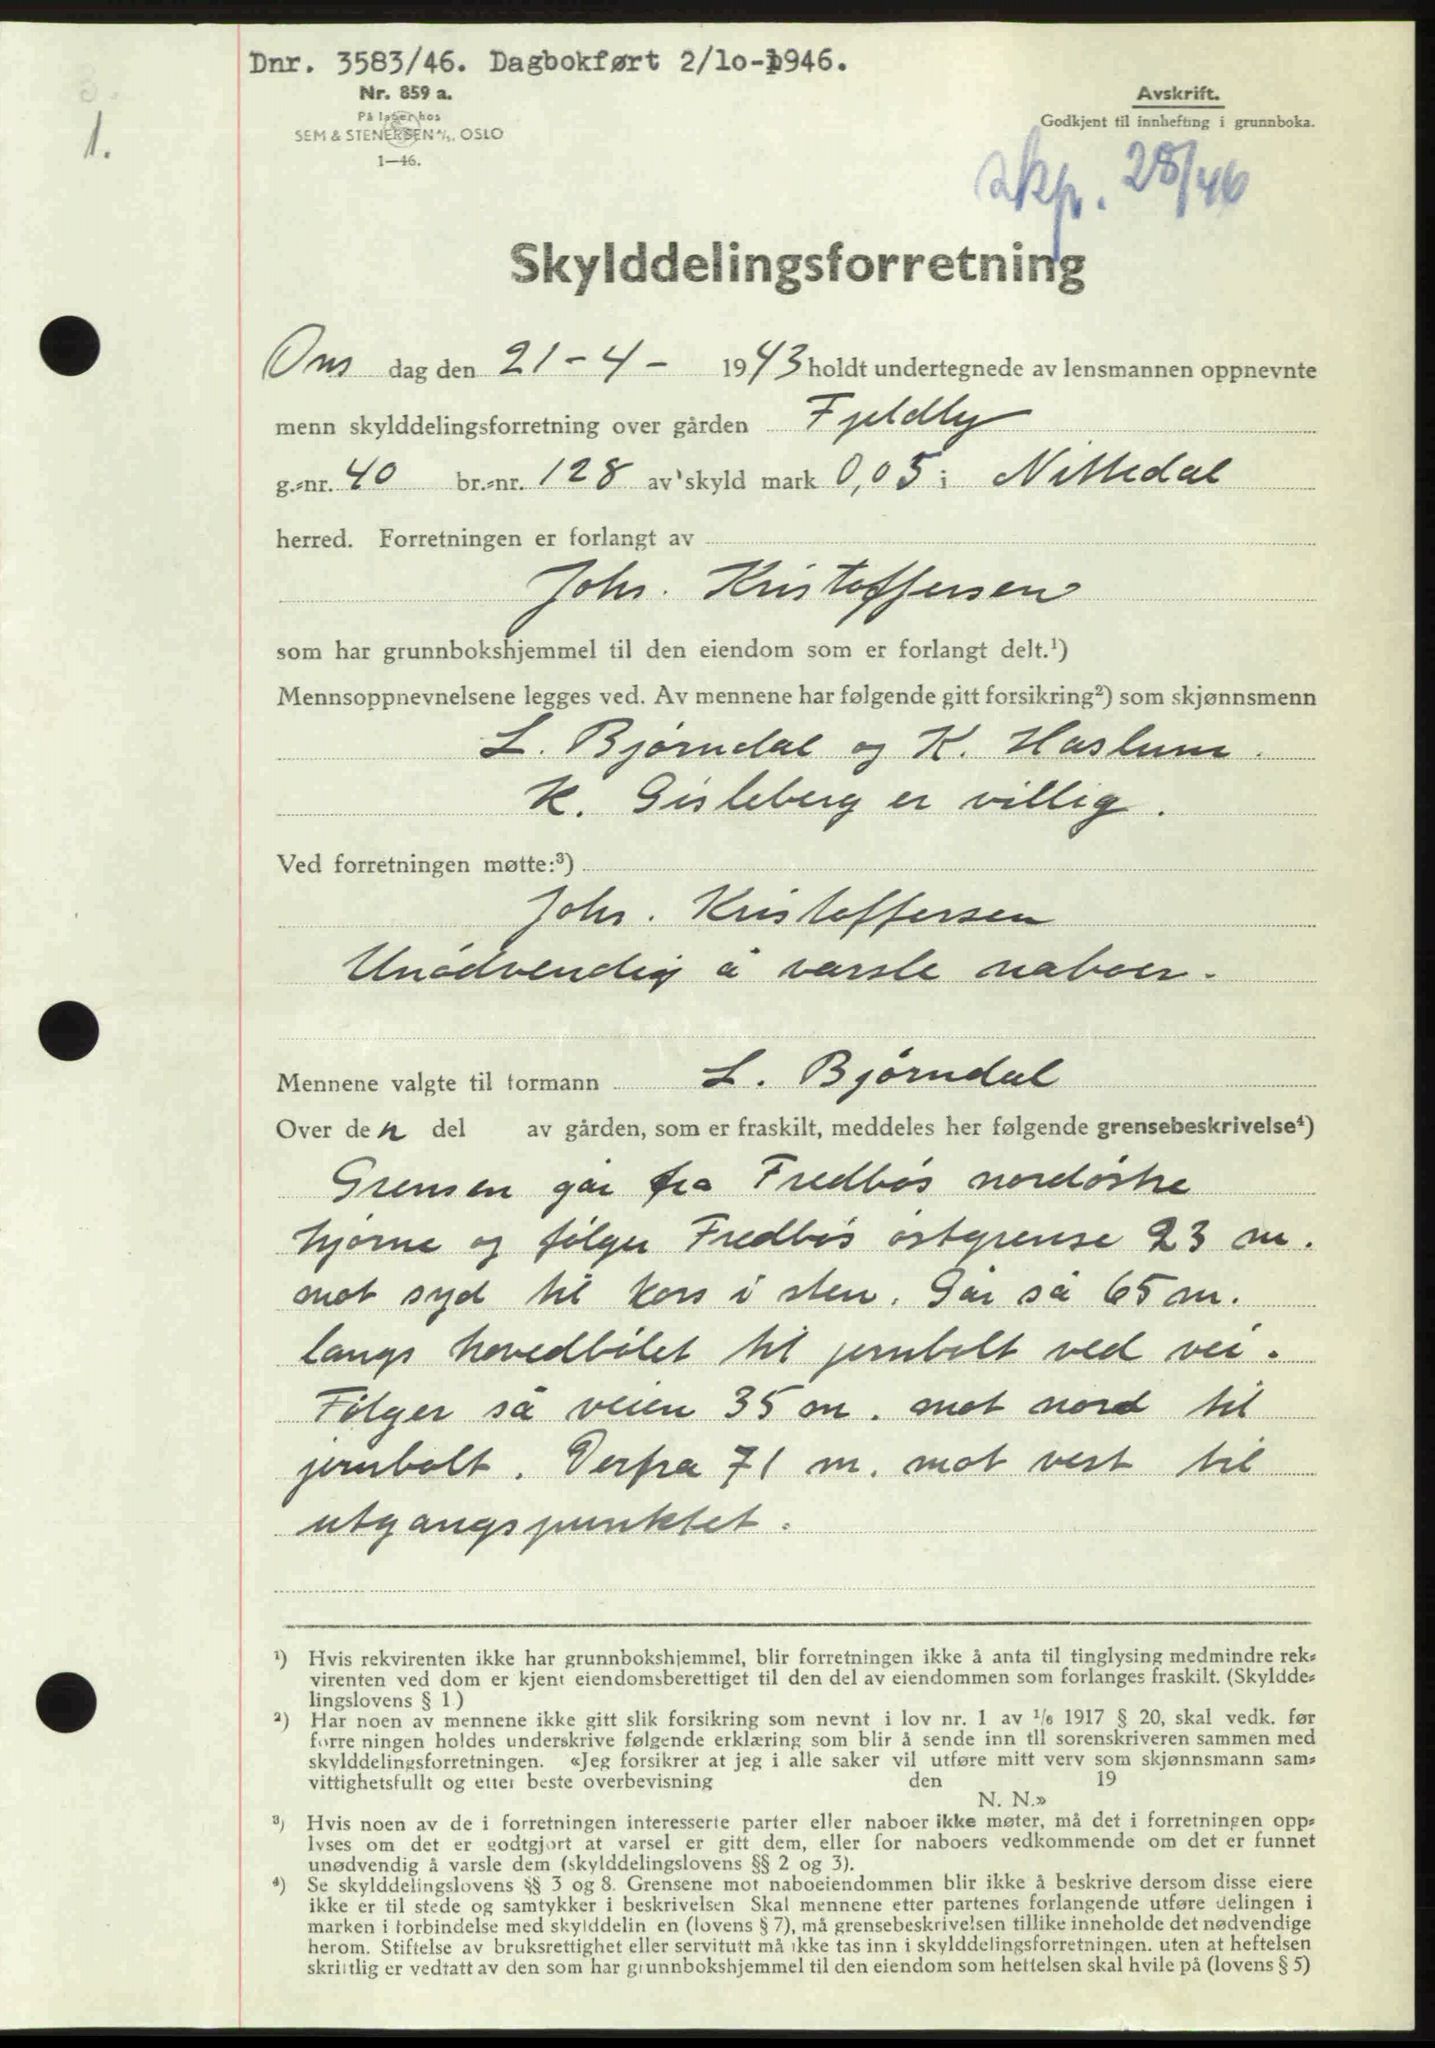 Dnr. 3583/46. Dagbokført 2/10-1946.
Nr. 859 a.
På lager hos
SEM & STENERSEN A/S, OSLO
1—46.
Avskrift.
Godkjent til innhefting i grunnboka.
skp. 28/46
1.
Skylddelingsforretning
Ons dag den 21-4- 1943 holdt undertegnede av lensmannen oppnevnte
menn skylddelingsforretning over gården Fjeldby
g.-nr. 40 br.-nr. 128 av skyld mark 0,05 i Nittedal
herred. Forretningen er forlangt av
Johs. Kristoffersen
som har grunnbokshjemmel til den eiendom som er forlangt delt.¹)
Mennsoppnevnelsene legges ved. Av mennene har følgende gitt forsikring²) som skjønnsmenn
L. Bjørndal og K. Haslum.
K. Gisleberg er villig.
Ved forretningen møtte:³)
Johs. Kristoffersen
Unødvendig å varsle naboer.
Mennene valgte til formann L. Bjørndal
Over den del av gården, som er fraskilt, meddeles her følgende grensebeskrivelse⁴)
Grensen går fra Fredbøs nordøstre
hjørne og følger Fredbøs østgrense 23 m.
mot syd til kors i sten. Går så 65 m.
langs hovedbølet til jernbolt ved vei.
Følger så veien 35 m. mot nord til
jernbolt. Derfra 71 m. mot vest til
utgangspunktet.
¹) Hvis rekvirenten ikke har grunnbokshjemmel, blir forretningen ikke å anta til tinglysing medmindre rek-
virenten ved dom er kjent eiendomsberettiget til den del av eiendommen som forlanges fraskilt. (Skyldde-
lingslovens § 1)
²) Har noen av mennene ikke gitt slik forsikring som nevnt i lov nr. 1 av 1/6 1917 § 20, skal vedk. før
forre ningen holdes underskrive følgende erklæring som blir å sende inn tll sorenskriveren sammen med
skylddelingsforretningen. «Jeg forsikrer at jeg i alle saker vil utføre mitt verv som skjønnsmann sam-
vittighetsfullt og etter beste overbevisning den 19
N. N.»
³) Hvis noen av de i forretningen interesserte parter eller naboer ikke møter, må det i forretningen opp-
lyses om det er godtgjort at varsel er gitt dem, eller for naboers vedkommende om det er funnet
unødvendig å varsle dem (skylddelingslovens §§ 2 og 3).
⁴) Se skylddelingslovens §§ 3 og 8. Grensene mot naboeiendommen blir ikke å beskrive dersom disse eiere
ikke er til stede og samtykker i beskrivelsen Skal mennene etter partenes forlangende utføre delingen i
marken i forbindelse med skylddelin en (lovens § 7), må grensebeskrivelsen tillike inneholde det nødvendige
herom. Stiftelse av bruksrettighet eller servitutt må ikke tas inn i skylddelingsforretningen. uten at heftelsen
skriftlig er vedtatt av den som har grunnbokshjemmel til den eiendom som heftelsen skal hvile på (lovens § 5)